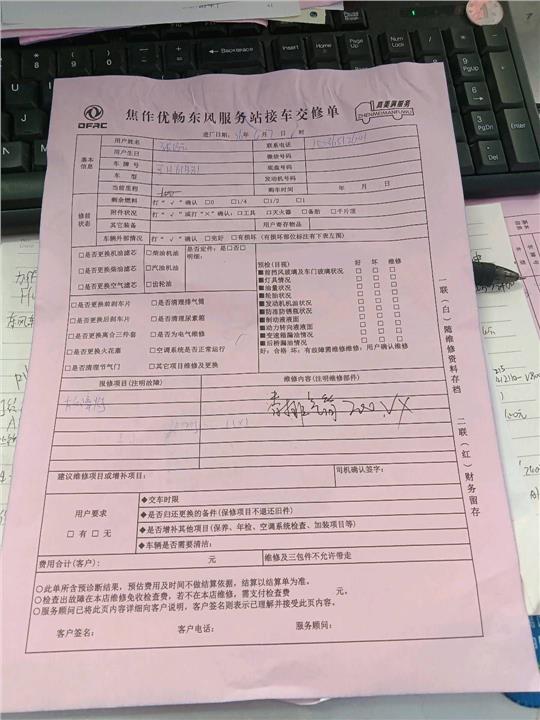 DFAC
焦作优畅东风服务站接车交修单
真美满服务
ZHENMEIMANFUWU
进厂日期: 年 6 月 7 日 时
基本信息
用户姓名
联系电话
用户生日
微信号码
车牌号
底盘号码
车型
发动机号码
当前里程
购车时间 年 月 日
修前状态
剩余燃料 打"√"确认 □0 □1/4 □1/2 □1
附件状况 打"√"或打"×"确认:□工具 □灭火器 □备胎 □千斤顶
其它装备
用户寄存物品
车辆外部情况 打"√"确认 □完好 □有损坏(有损坏部位标注有下表左图)
□是否更换机油滤芯 □柴油机油
□是否更换柴油滤芯 □汽油机油
□是否更换空气滤芯 □齿轮油
是否定件:是□否□
明细:
□是否更换前刹车片 □是否清理排气筒
□是否更换后刹车片 □是否清理尿素箱
□是否更换离合三件套 □是否为电气维修
□是否更换火花塞 □空调系统是否正常运行
□是否清理节气门 □其它项目维修及更换
预检(目视): 好 坏 维修
■前挡风玻璃及车门玻璃状况 □ □ □
■灯具情况 □ □ □
■油量状况 □ □ □
■轮胎状况 □ □ □
■发动机机油状况 □ □ □
■防冻防锈瓶状况 □ □ □
■制动液液面 □ □ □
■动力转向液液面 □ □ □
■变速箱漏油情况 □ □ □
■后桥漏油情况 □ □ □
好:合格 坏:有故障需维修维修:用户确认维修
报修项目(注明故障)
维修内容(注明维修部件)
排气筒 200
建议维修项目或增补项目:
司机确认签字:
用户要求
□有 □无
◆交车时限
◆是否归还更换的备件(保修项目不退还旧件)
◆是否增补其他项目(保养、年检、空调系统检查、加装项目等)
◆车辆是否需要清洁:
费用合计(客户): 元
维修及三包件不允许带走
○此单所含预诊断结果,预估费用及时间不做结算依据,结算以结算单为准。
○检查出故障在本店维修免收检查费,若不在本店维修,需支付检查费 元。
○服务顾问已将此页内容详细向客户说明,客户签名则表示已理解并接受此页内容。
客户签名: 客户电话: 服务顾问:
一联(白)随维修资料存档
二联(红)财务留存
Backspace
Insert
Home
PgDn
Enter
End